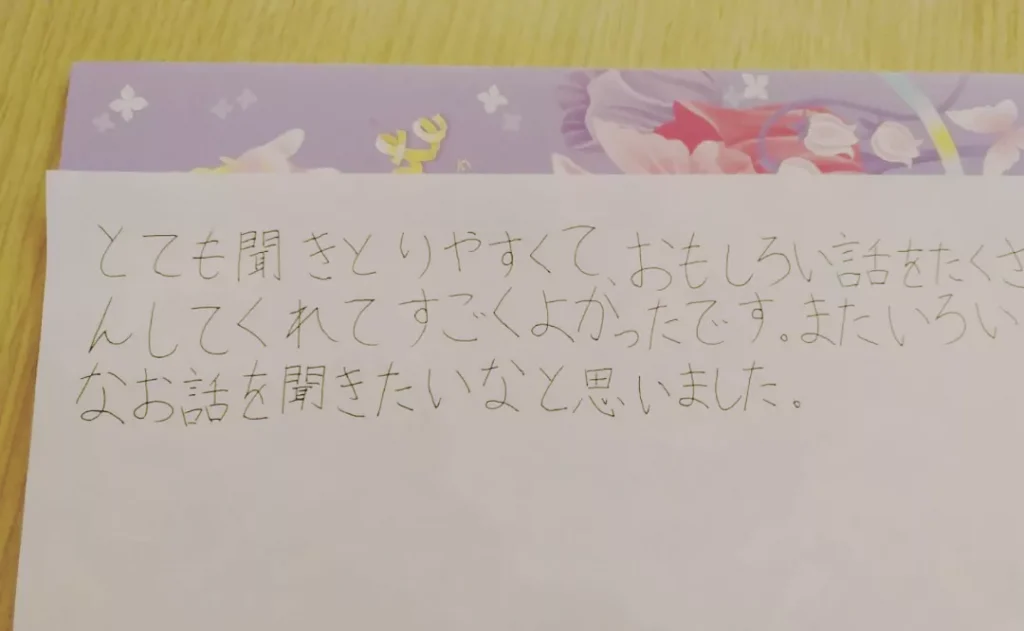 とても聞きとりやすくて、おもしろい話をたくさ
んしてくれてすごくよかったです。またいろい
なお話を聞きたいなと思いました。